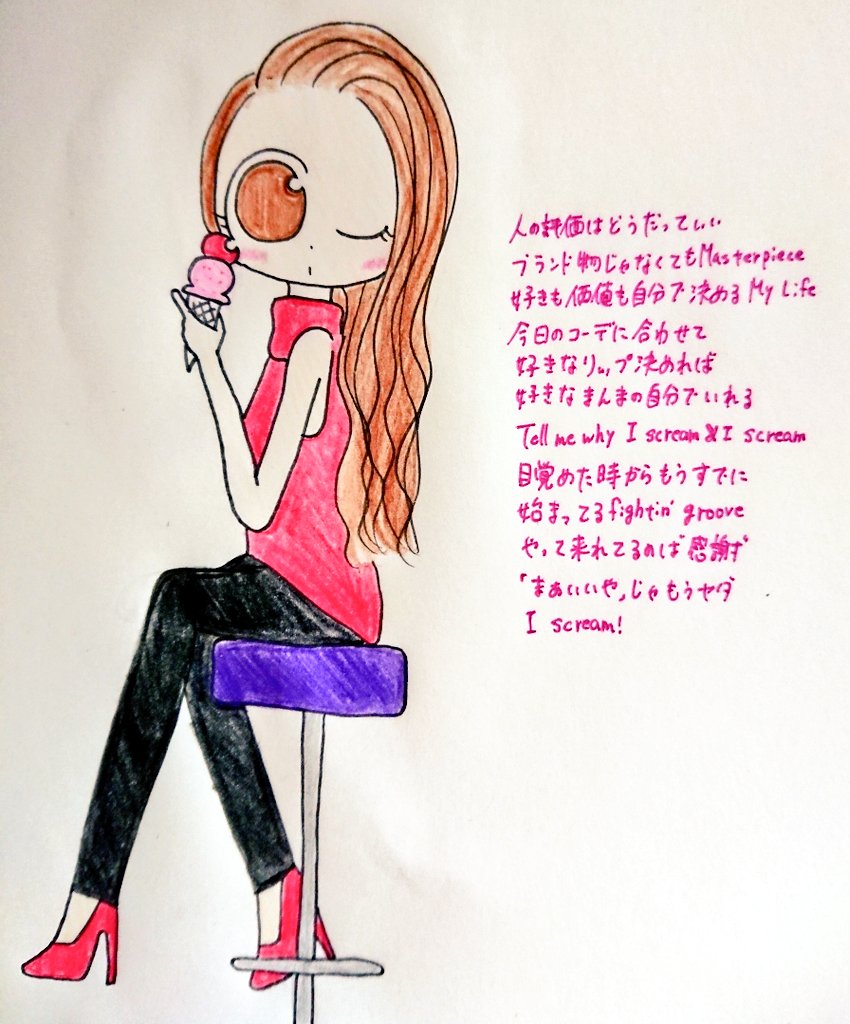 人の評価はどうだっていい
ブランド物じゃなくてもMasterpiece
好きも価値も自分で決める My Life
今日のコーデに合わせて
好きなリップ決めれば
好きなまんまの自分でいれる
Tell me why I scream & I scream
目覚めた時からもうすでに
始まってるfightin' groove
やって来れてるのは感謝ず
「まぁいいや」じゃもうヤダ
I scream!